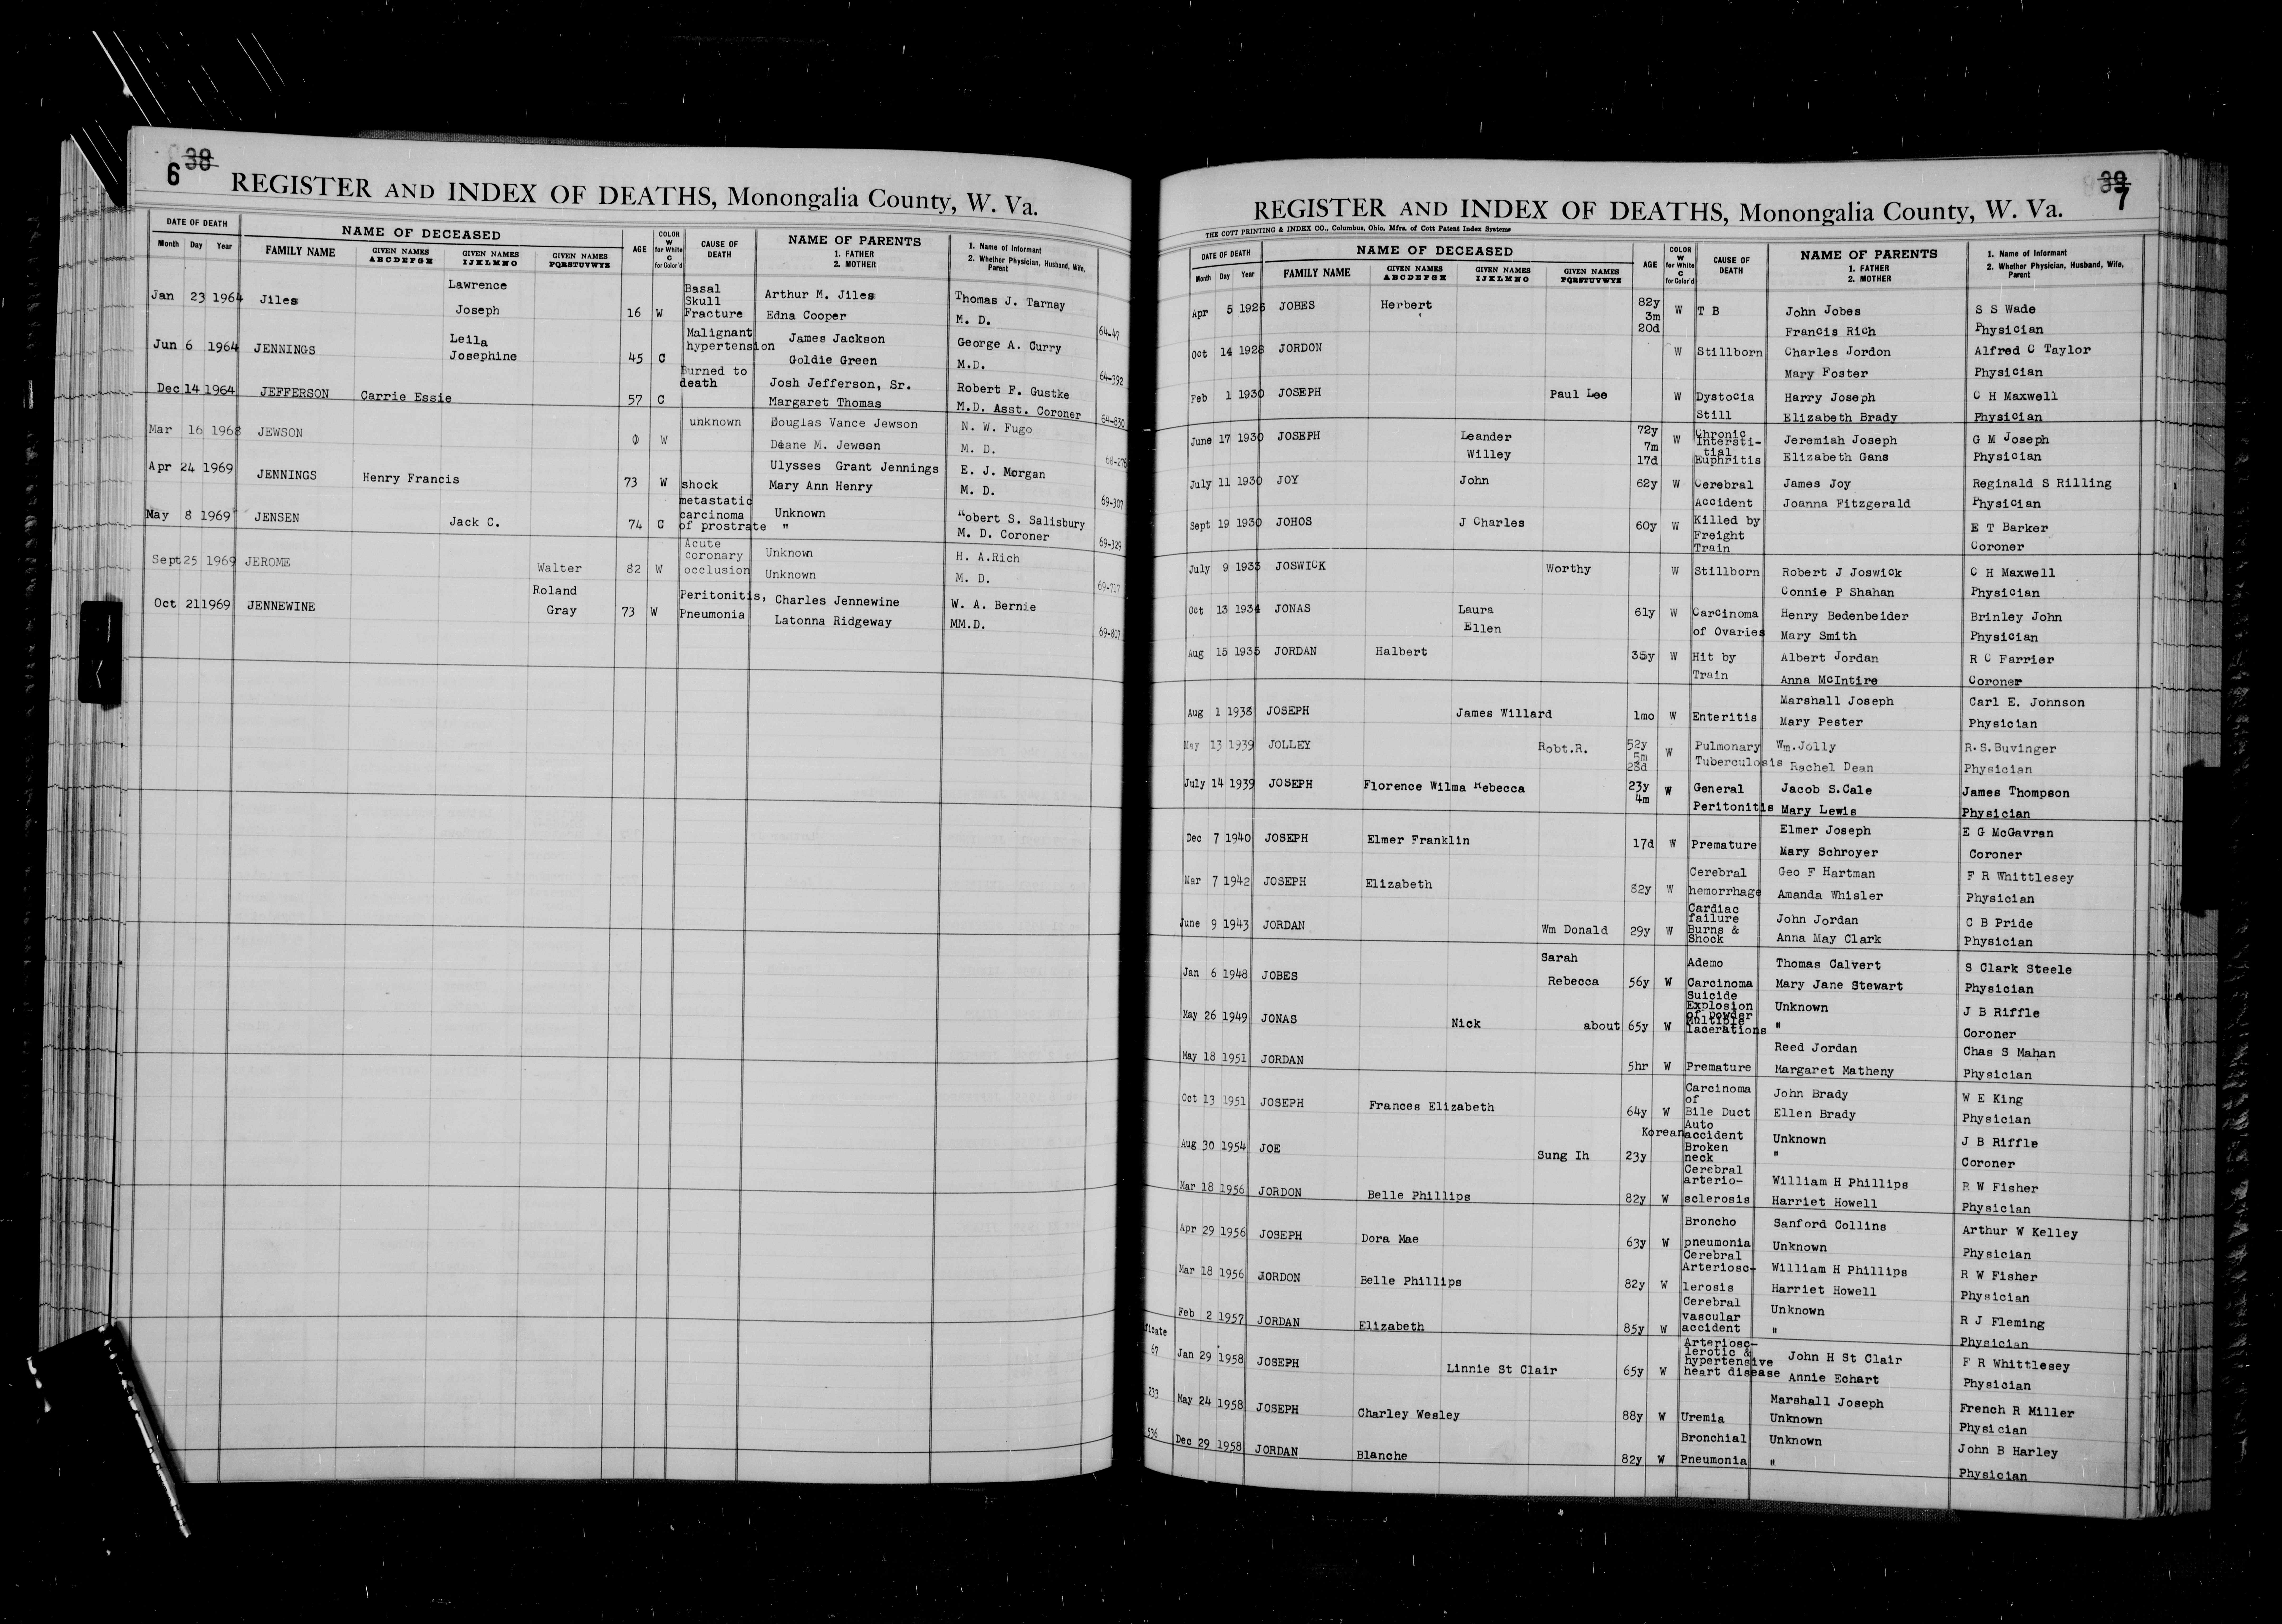 6 38
REGISTER AND INDEX OF DEATHS, Monongalia County, W. Va.
DATE OF DEATH NAME OF DECEASED AGE COLOR W for White C for Color'd CAUSE OF DEATH NAME OF PARENTS 1. FATHER 2. MOTHER 1. Name of Informant 2. Whether Physician, Husband, Wife, Parent
Month Day Year FAMILY NAME GIVEN NAMES ABCDEFGH GIVEN NAMES IJKLMNO GIVEN NAMES PQRSTUVWYZ
Lawrence Basal
Jan 23 1964 Jiles Skull Arthur M. Jiles Thomas J. Tarnay
Joseph 16 W Fracture Edna Cooper M. D. 64-47
Leila Malignant James Jackson George A. Curry
Jun 6 1964 JENNINGS Josephine 45 C hypertension Goldie Green M.D. 64-392
Burned to
Dec 14 1964 JEFFERSON Carrie Essie 57 C death Josh Jefferson, Sr. Robert F. Gustke
Margaret Thomas M.D. Asst. Coroner 64-830
Mar 16 1968 JEWSON 0 W unknown Douglas Vance Jewson N. W. Fugo
Deane M. Jewson M. D. 68-276
Apr 24 1969 JENNINGS Henry Francis 73 W shock Ulysses Grant Jennings E. J. Morgan
Mary Ann Henry M. D. 69-307
metastatic
May 8 1969 JENSEN Jack C. 74 C carcinoma Unknown obert S. Salisbury
of prostrate " M. D. Coroner 69-329
Acute
Sept 25 1969 JEROME coronary Unknown H. A.Rich
Walter 82 W occlusion Unknown M. D. 69-717
Roland Peritonitis, Charles Jennewine W. A. Bernie
Oct 21 1969 JENNEWINE Gray 73 W Pneumonia Latonna Ridgeway MM.D. 69-807
39 7
REGISTER AND INDEX OF DEATHS, Monongalia County, W. Va.
THE COTT PRINTING & INDEX CO., Columbus, Ohio, Mfrs. of Cott Patent Index Systems
DATE OF DEATH NAME OF DECEASED AGE COLOR W for White C for Color'd CAUSE OF DEATH NAME OF PARENTS 1. FATHER 2. MOTHER 1. Name of Informant 2. Whether Physician, Husband, Wife, Parent
Month Day Year FAMILY NAME GIVEN NAMES ABCDEFGH GIVEN NAMES IJKLMNO GIVEN NAMES PQRSTUVWYZ
Apr 5 1926 JOBES Herbert 82y 3m 20d W T B John Jobes S S Wade
Francis Rich Physician
Oct 14 1928 JORDON W Stillborn Charles Jordon Alfred C Taylor
Mary Foster Physician
Feb 1 1930 JOSEPH Paul Lee W Dystocia Harry Joseph C H Maxwell
Still Elizabeth Brady Physician
June 17 1930 JOSEPH Leander 72y 7m 17d W Chronic Intersti- Jeremiah Joseph G M Joseph
Willey tial Euphritis Elizabeth Gans Physician
July 11 1930 JOY John 62y W Cerebral James Joy Reginald S Rilling
Accident Joanna Fitzgerald Physician
Sept 19 1930 JOHOS J Charles 60y W Killed by E T Barker
Freight Train Coroner
July 9 1933 JOSWICK Worthy W Stillborn Robert J Joswick C H Maxwell
Connie P Shahan Physician
Oct 13 1934 JONAS Laura 61y W Carcinoma Henry Bedenbeider Brinley John
Ellen of Ovaries Mary Smith Physician
Aug 15 1935 JORDAN Halbert 35y W Hit by Albert Jordan R C Farrier
Train Anna McIntire Coroner
Marshall Joseph Carl E. Johnson
Aug 1 1938 JOSEPH James Willard 1mo W Enteritis Mary Pester Physician
May 13 1939 JOLLEY Robt.R. 52y 5m 28d W Pulmonary Wm.Jolly R.S.Buvinger
Tuberculosis Rachel Dean Physician
July 14 1939 JOSEPH Florence Wilma Rebecca 23y 4m W General Jacob S.Cale James Thompson
Peritonitis Mary Lewis Physician
Dec 7 1940 JOSEPH Elmer Franklin 17d W Premature Elmer Joseph E G McGavran
Mary Schroyer Coroner
Mar 7 1942 JOSEPH Elizabeth 82y W Cerebral Geo F Hartman F R Whittlesey
hemorrhage Amanda Whisler Physician
Cardiac
June 9 1943 JORDAN failure John Jordan C B Pride
Wm Donald 29y W Burns & Shock Anna May Clark Physician
Sarah Ademo Thomas Calvert S Clark Steele
Jan 6 1948 JOBES Rebecca 56y W Carcinoma Mary Jane Stewart Physician
Suicide
May 26 1949 JONAS Explosion of powder Unknown J B Riffle
Nick about 65y W Multiple lacerations " Coroner
May 18 1951 JORDAN Reed Jordan Chas S Mahan
5hr W Premature Margaret Matheny Physician
Oct 13 1951 JOSEPH Frances Elizabeth Carcinoma of John Brady W E King
64y W Bile Duct Ellen Brady Physician
Korean Auto accident
Aug 30 1954 JOE Sung Ih 23y Broken neck Unknown J B Riffle
" Coroner
Cerebral
Mar 18 1956 JORDON Belle Phillips arterio- William H Phillips R W Fisher
82y W sclerosis Harriet Howell Physician
Apr 29 1956 JOSEPH Dora Mae Broncho Sanford Collins Arthur W Kelley
63y W pneumonia Unknown Physician
Cerebral
Mar 18 1956 JORDON Belle Phillips Arteriosc- William H Phillips R W Fisher
82y W lerosis Harriet Howell Physician
Feb 2 1957 JORDAN Elizabeth Cerebral vascular Unknown R J Fleming
85y W accident " Physician
ficate
67 Jan 29 1958 JOSEPH Linnie St Clair Arteriosc- lerotic & John H St Clair F R Whittlesey
65y W hypertensive heart disease Annie Echart Physician
233 May 24 1958 JOSEPH Charley Wesley Marshall Joseph French R Miller
88y W Uremia Unknown Physician
536 Dec 29 1958 JORDAN Blanche Bronchial Unknown John B Harley
82y W Pneumonia " Physician